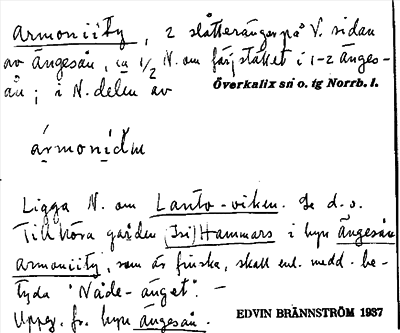 Armoniity, 2 slåtterängar på V. sidan
av Ängesån, ca 1/2 N. om färjstället i 1-2 Änges-
ån; i N. delen av
Överkalix sn o. tg Norrb. l.
ármonìdm
Ligga N. om Lanto-viken. Se d.o.
Tillhöra gården (Isi)Hammars i byn Ängesån
Armoniity, som är finska, skall enl. medd. be-
tyda 'Nåde-änget'. —
Uppg. fr. byn Ängesån.
EDVIN BRÄNNSTRÖM 1937